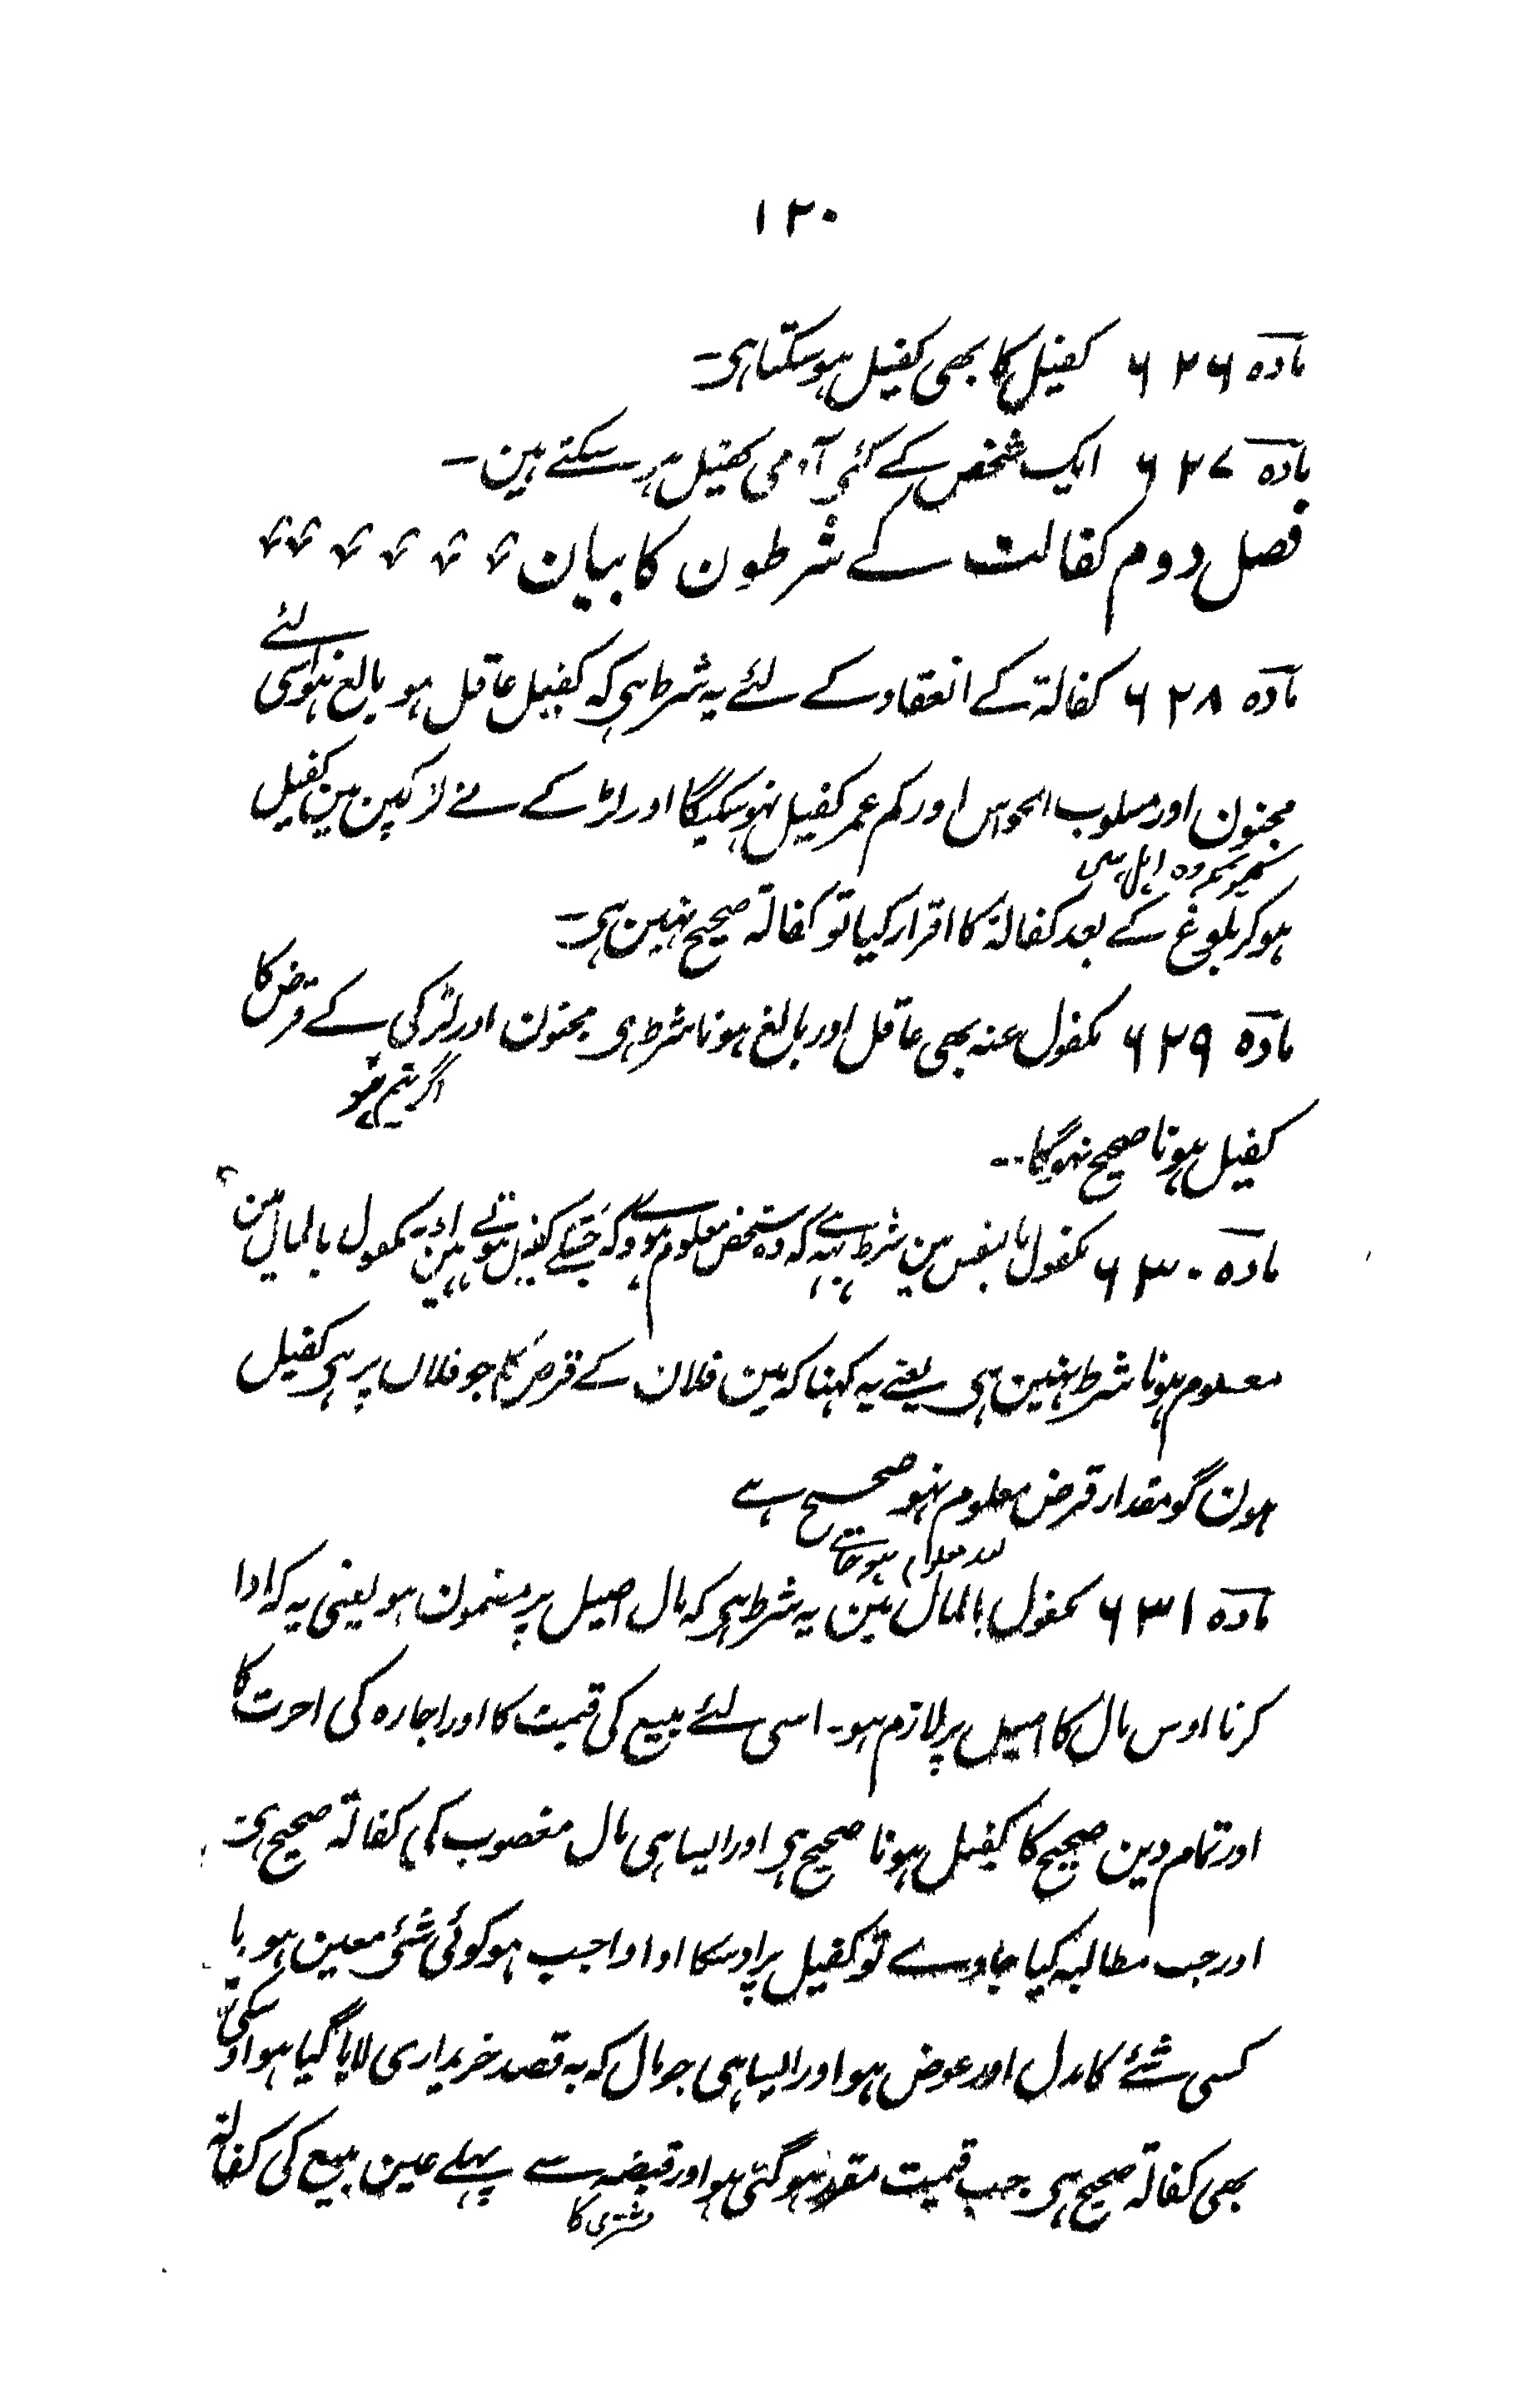 ۱۲۰
مادہ ۶۲۶ کفیل کا بھی کفیل ہو سکتا ہی۔
مادہ ۶۲۷ ایک شخص کے کئی آدمی کفیل ہو سکتے ہین۔
فصل دوم کفالت کے شرطون کا بیان
مادہ ۶۲۸ کفالۃ کے انعقاد کے لئے یہ شرط ہی کہ کفیل عاقل ہو بالغ ہو اسی لئے
مجنون اور مسلوب الحواس اور کم عمر کفیل نہوسکیگا اور لڑکے نے لڑکپن مین کفیل
ہوکر بلوغ کے بعد کفالۃ کا اقرار کیا تو کفالۃ صحیح نہین ہی۔
مادہ ۶۲۹ مکفول عنہ بھی عاقل اور بالغ ہونا شرط ہی مجنون اور لڑکی کے قرض کا
کفیل ہونا صحیح نہوگا۔
مادہ ۶۳۰ مکفول بالنفس مین شرط یہہ ہے کہ وہ شخص معلوم ہووے کہ جسکے کفیل ہوتے ہین اور مکفول بالمال مین
معلوم ہونا شرط نہین ہی یعنے یہ کہنا کہ مین فلان کے قرض کا جو فلاں پر ہی کفیل
ہون گو مقدار قرض معلوم نہو صحیح ہے
بعد معلوم ہوجائے
مادہ ۶۳۱ مکفول بالمال مین یہ شرط ہی کہ مال اصیل پر مضمون ہو یعنی یہ کہ ادا
کرنا اوس مال کا اصیل پر لازم ہو۔ اسی لئے مبیع کی قیمت کا اور اجارہ کی اجرت کا
اور تمام دین صحیح کا کفیل ہونا صحیح ہی اور ایسا ہی مال مغصوب کی کفالۃ صحیح ہی۔
اور جب مطالبہ کیا جاوے تو کفیل پر اوسکا ادا واجب ہو کوئی شئی معین ہو یا
کسی شئے کا بدل اور عوض ہو اور ایسا ہی جو مال کہ بہ قصد خریداری لایا گیا ہو اوسکی
بھی کفالۃ صحیح ہی جب قیمت مقرر ہوگئی ہو اور قبضہ سے پہلے عین مبیع کی کفالۃ
مشتری کا